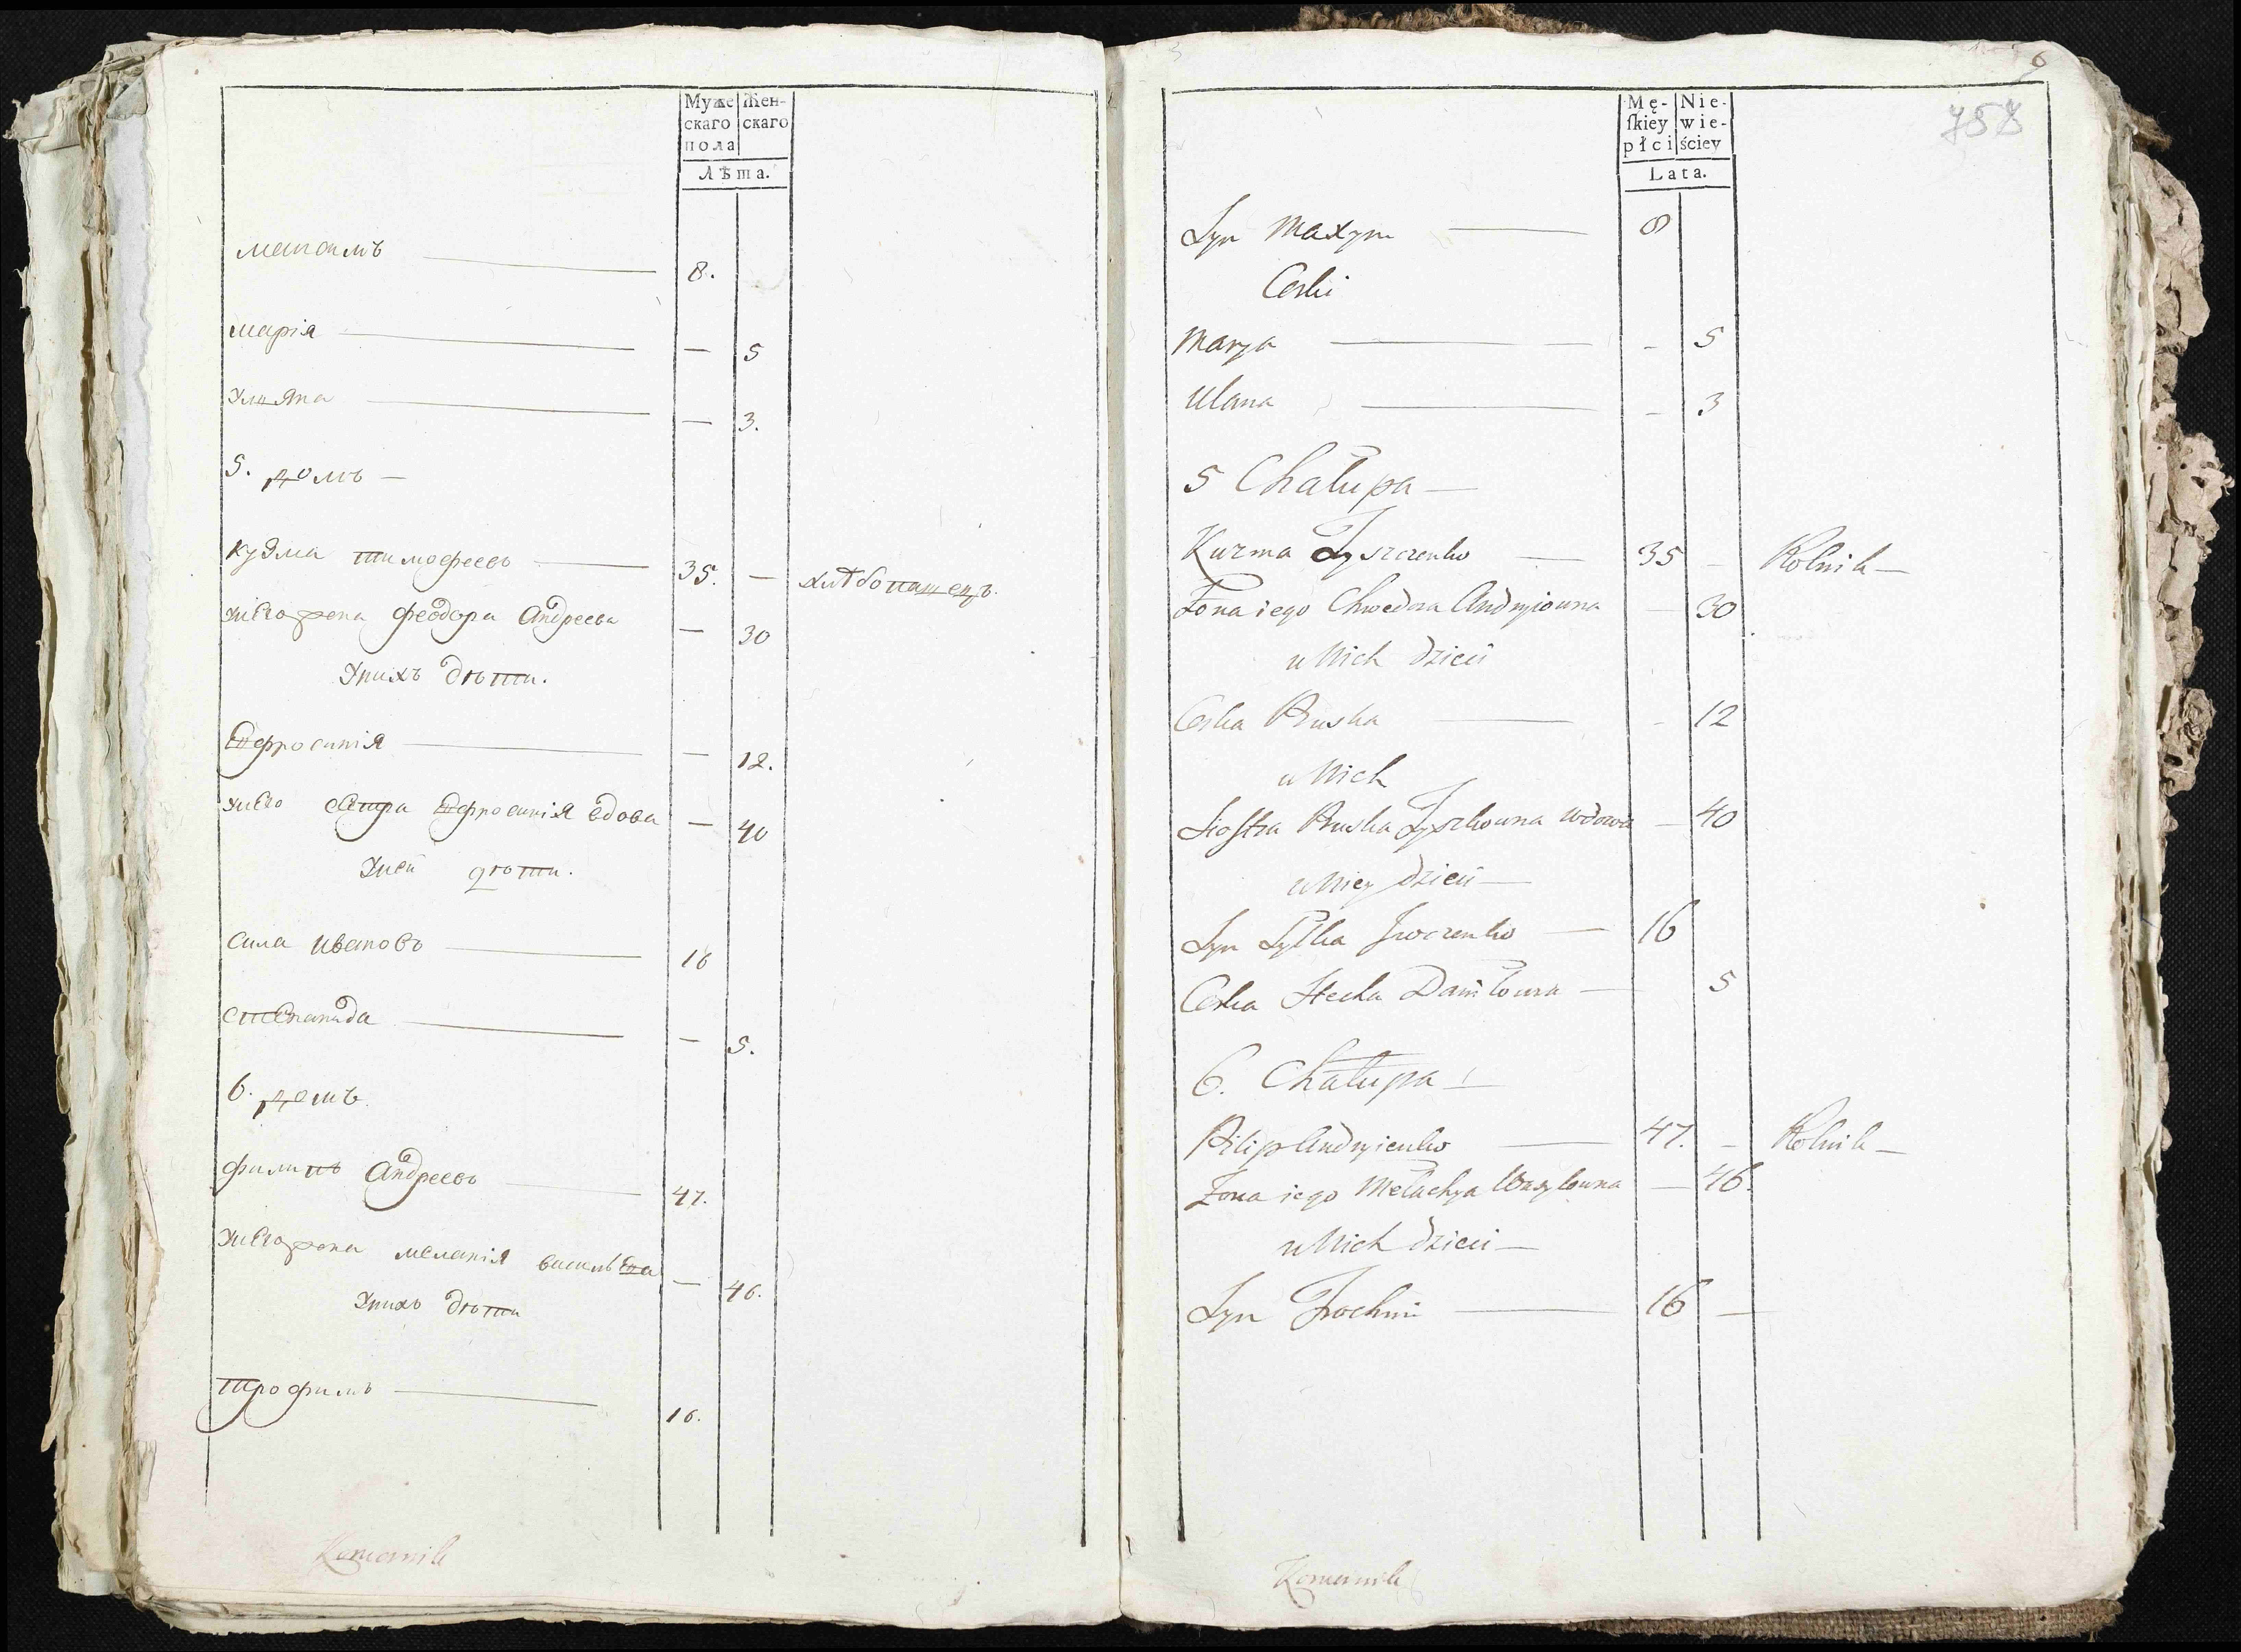 Муже Жен-
скаго скаго
пола
Лѣта.
максимъ 8.
марія — 5
Улияна — 3.
5. домъ —
кузма тимофеевъ 35. — хлѣбопашецъ.
унего жена феодора Андреева — 30
Унихъ дѣти.
Ефросинія — 12.
унего сестра Ефросинія вдова — 40
Уней дѣти.
сила ивановъ 16
степанида — 5.
6. домъ.
филипъ Андреевъ 47.
унего жена меланія васильева — 46.
Унихъ дѣти
трофимъ 16.
Komornik
6
758
Mę- Nie-
ſkiey wie-
płci ściey
Lata.
Syn Maxym 8
Corki
Marya — 5
Ulana — 3
5 Chałupa —
Kuzma Tyszczenko — 35 — Rolnik —
Żona iego Chwedora Andryiowna — 30
u Nich dzieci
Corka Pruska — 12
u Nich
Siostra Pruska Tyszkowna wdowa — 40
u Niey dzieci —
Syn Syłka Iwczenko — 16
Corka Stecka Daniłowna — 5
6. Chałupa —
Pilip Andryienko 47. — Rolnik —
Żona iego Mełachya Wasylowna — 46.
u Nich dzieci —
Syn Trochim 16 —
Komornik